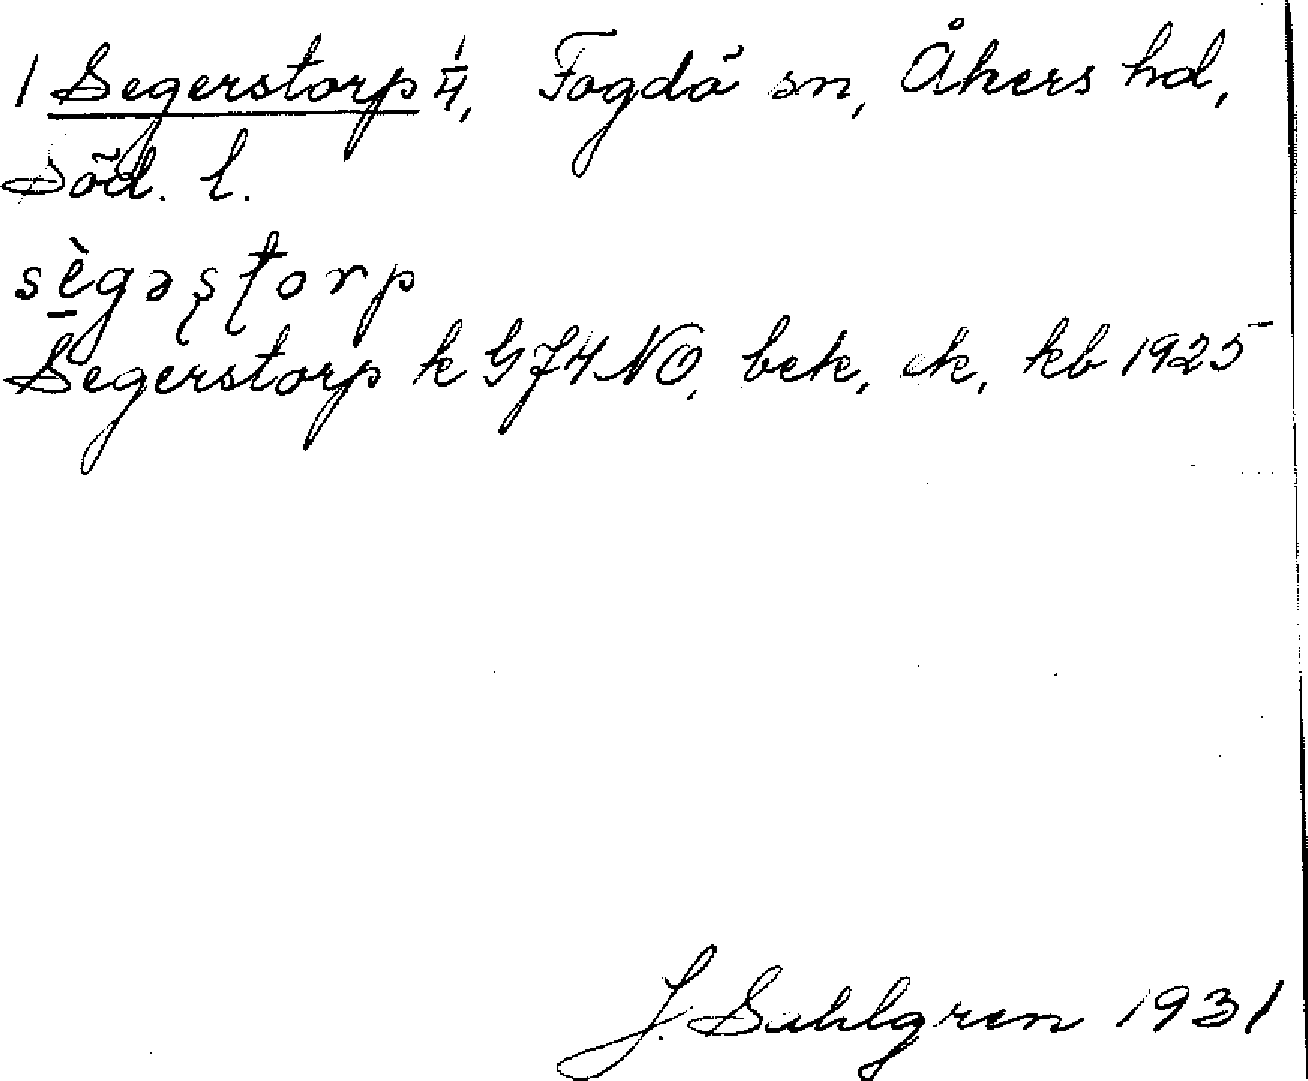 1 Segerstorp 1/4, Fogdö sn, Åkers hd,
Söd. l.
sè̱gəʂʈorp
Segerstorp k GJ4NO, bek, ek, kb 1925
J. Sahlgren 1931